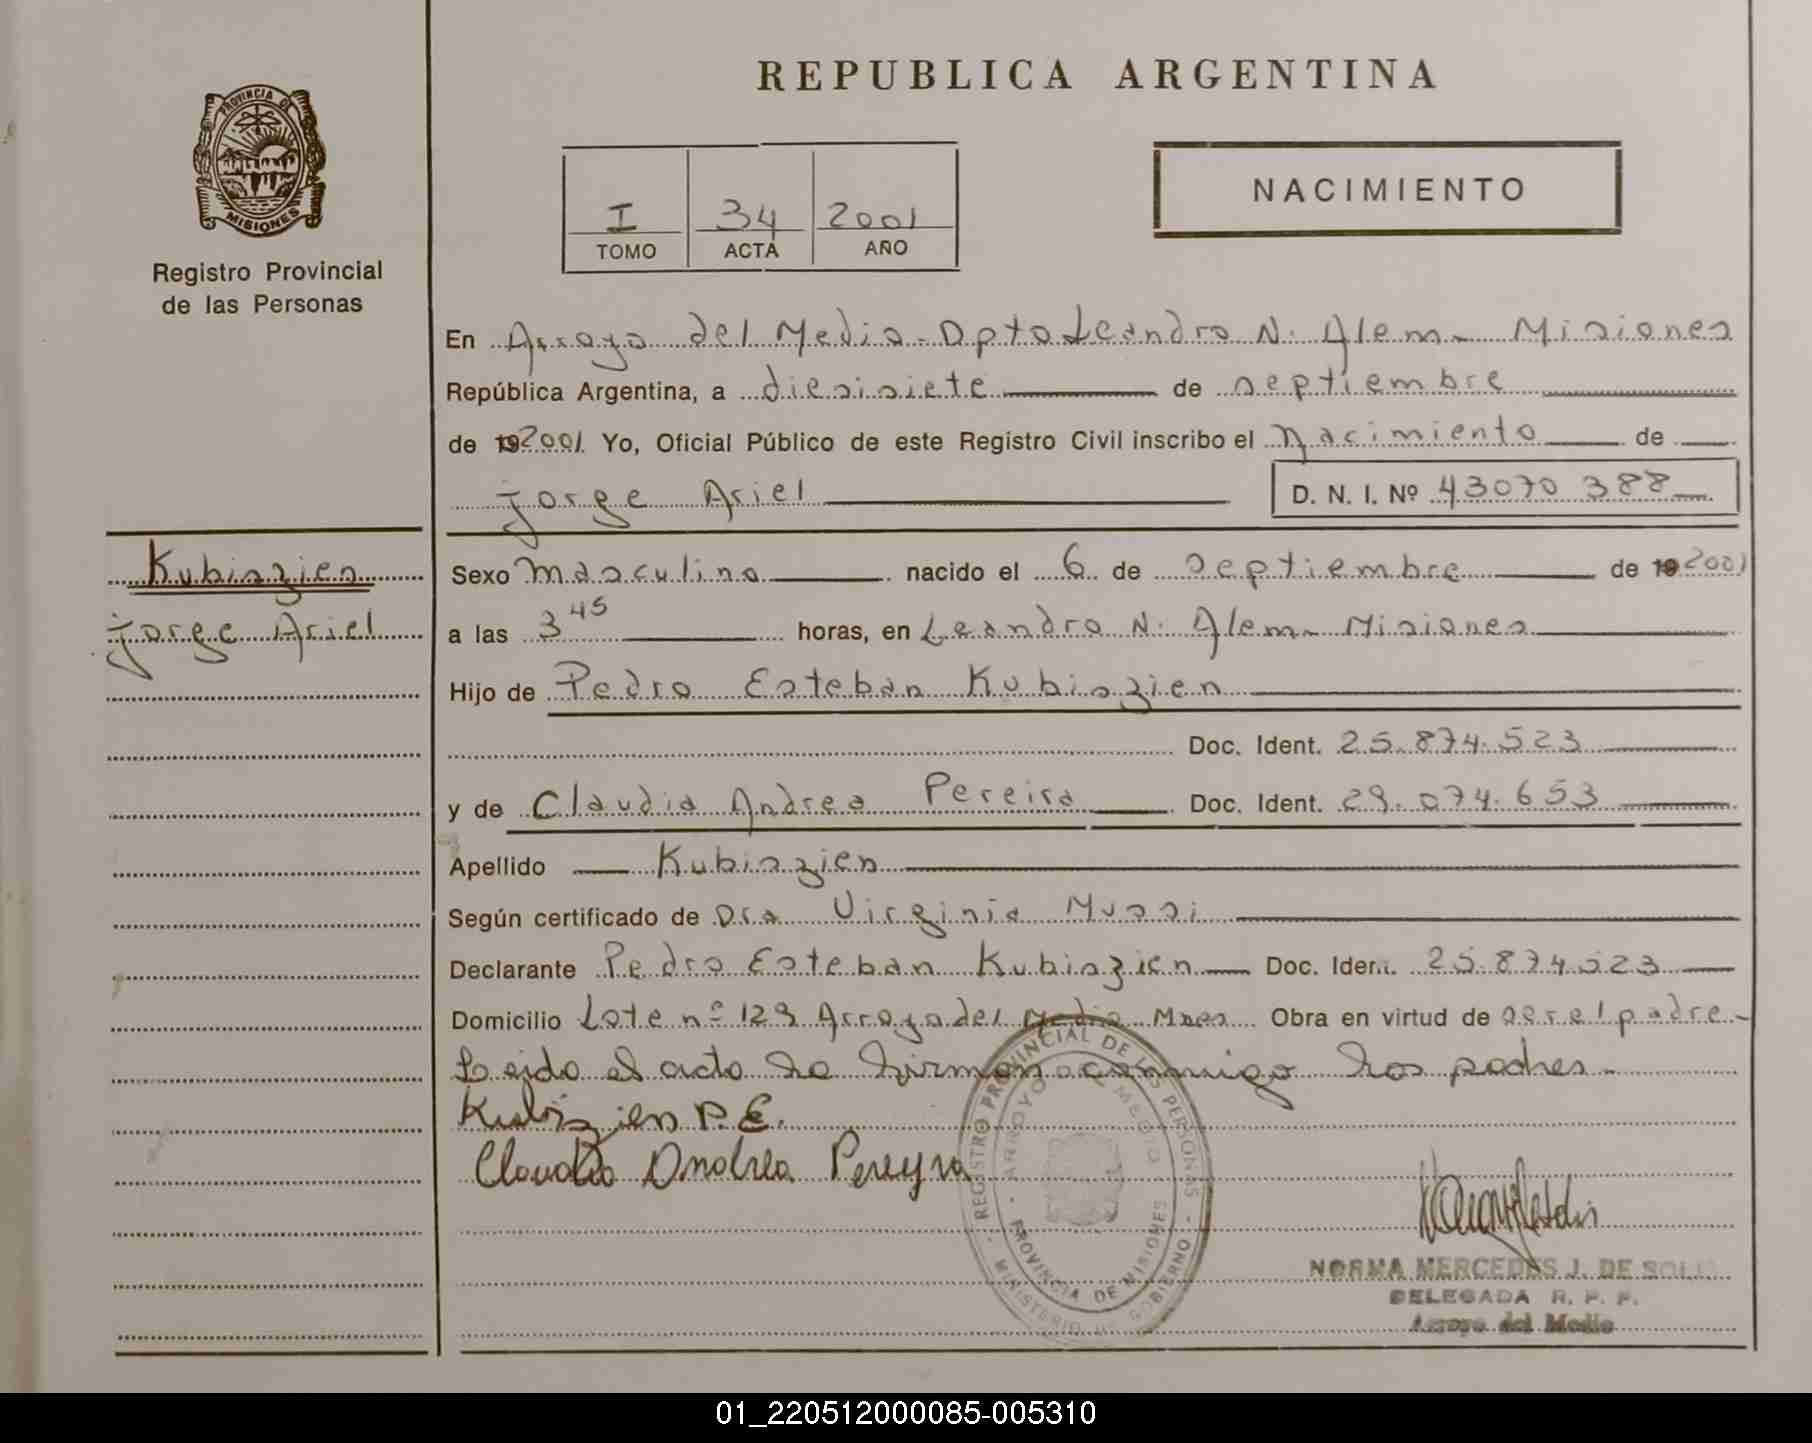 REPUBLICA ARGENTINA
PROVINCIA DE
MISIONES
Registro Provincial
de las Personas
I 34 2001
TOMO ACTA AÑO
NACIMIENTO
En Arroyo del Medio - Dpto Leandro N. Alem - Misiones
República Argentina, a diesisiete de septiembre
de 19 2001 Yo, Oficial Público de este Registro Civil inscribo el Nacimiento de
Jorge Ariel D. N. I. Nº 43070 388
Kubiszien
Jorge Ariel
Sexo Masculino nacido el 6 de septiembre de 19 2001
a las 3 45 horas, en Leandro N. Alem - Misiones
Hijo de Pedro Esteban Kubiszien
Doc. Ident. 25.874.523
y de Claudia Andrea Pereira Doc. Ident. 29.074.653
Apellido Kubiszien
Según certificado de Dra Virginia Mussi
Declarante Pedro Esteban Kubiszien Doc. Ident. 25.874.523
Domicilio Lote nº 129 Arroyo del Medio Mnes Obra en virtud de ser el padre -
Leido el acto lo firman conmigo los padres -
Kubiszien P. E.
Claudia Andrea Pereyra
REGISTRO PROVINCIAL DE LAS PERSONAS
ARROYO DEL MEDIO
PROVINCIA DE MISIONES
MINISTERIO DE GOBIERNO
NORMA MERCEDES J. DE
DELEGADA R. P. P.
Arroyo del Medio
01_220512000085-005310